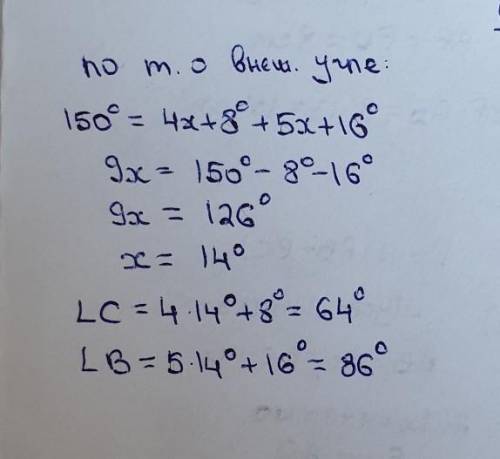 по т. о внеш. угле:
150° = 4x+8°+5x+16°
9x = 150°-8°-16°
9x = 126°
x = 14°
∠C = 4·14°+8°= 64°
∠B = 5·14°+16°= 86°